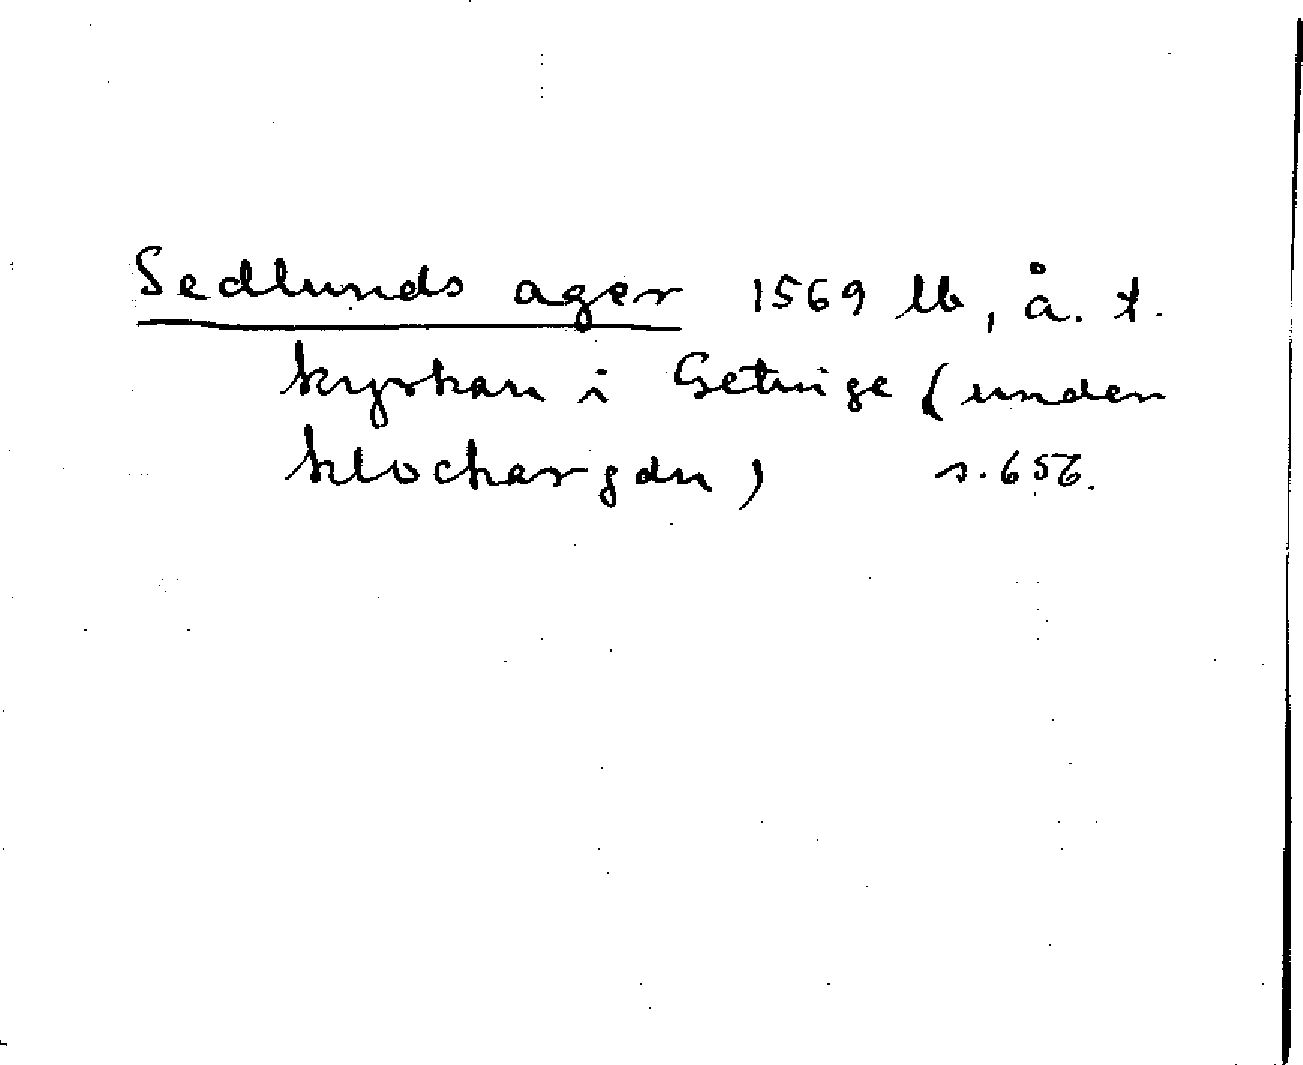 Sedlunds ager 1569 lb, å. t.
kyrkan i Getinge (under
klockargdn) s. 656.